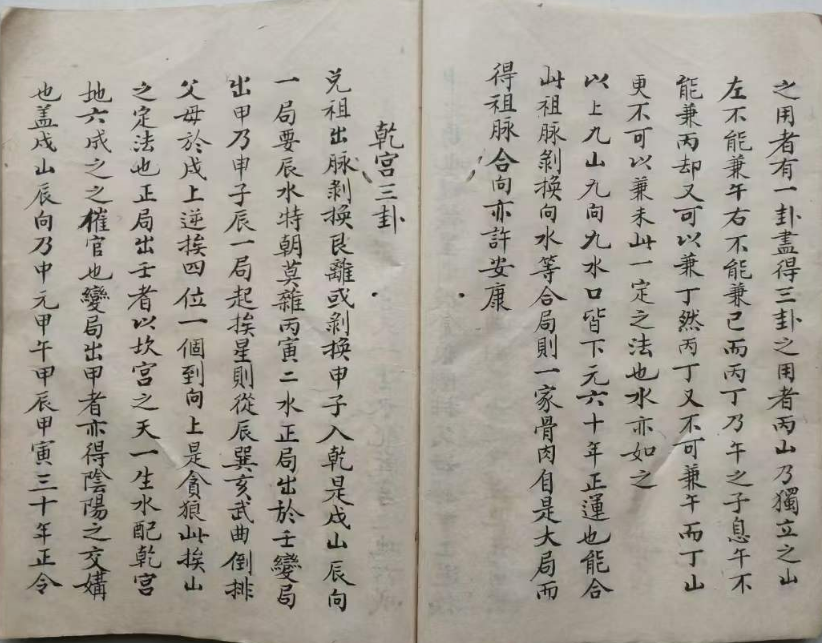 之用者有一卦盡得三卦之用者丙山乃獨立之山
左不能兼午右不能兼巳而丙丁乃午之子息午不
能兼丙却又可以兼丁然丙丁又不可兼午而丁山
更不可以兼未此一定之法也水亦如之
以上九山九向九水口皆下元六十年正運也能合
此祖脉剝換向水等合局則一家骨肉自是大局而
得祖脉合向亦許安康
乾宮三卦
兌祖出脉剝換艮離或剝換申子入乾是戍山辰向
一局要辰水特朝莫雜丙寅二水正局出於壬變局
出甲乃申子辰一局起挨星則從辰巽亥武曲倒排
父母於戍上逆挨四位一個到向上是貪狼此挨山
之定法也正局出壬者以坎宮之天一生水配乾宮
地六成之之催官也變局出甲者亦得陰陽之交媾
也盖戍山辰向乃中元甲午甲辰甲寅三十年正令